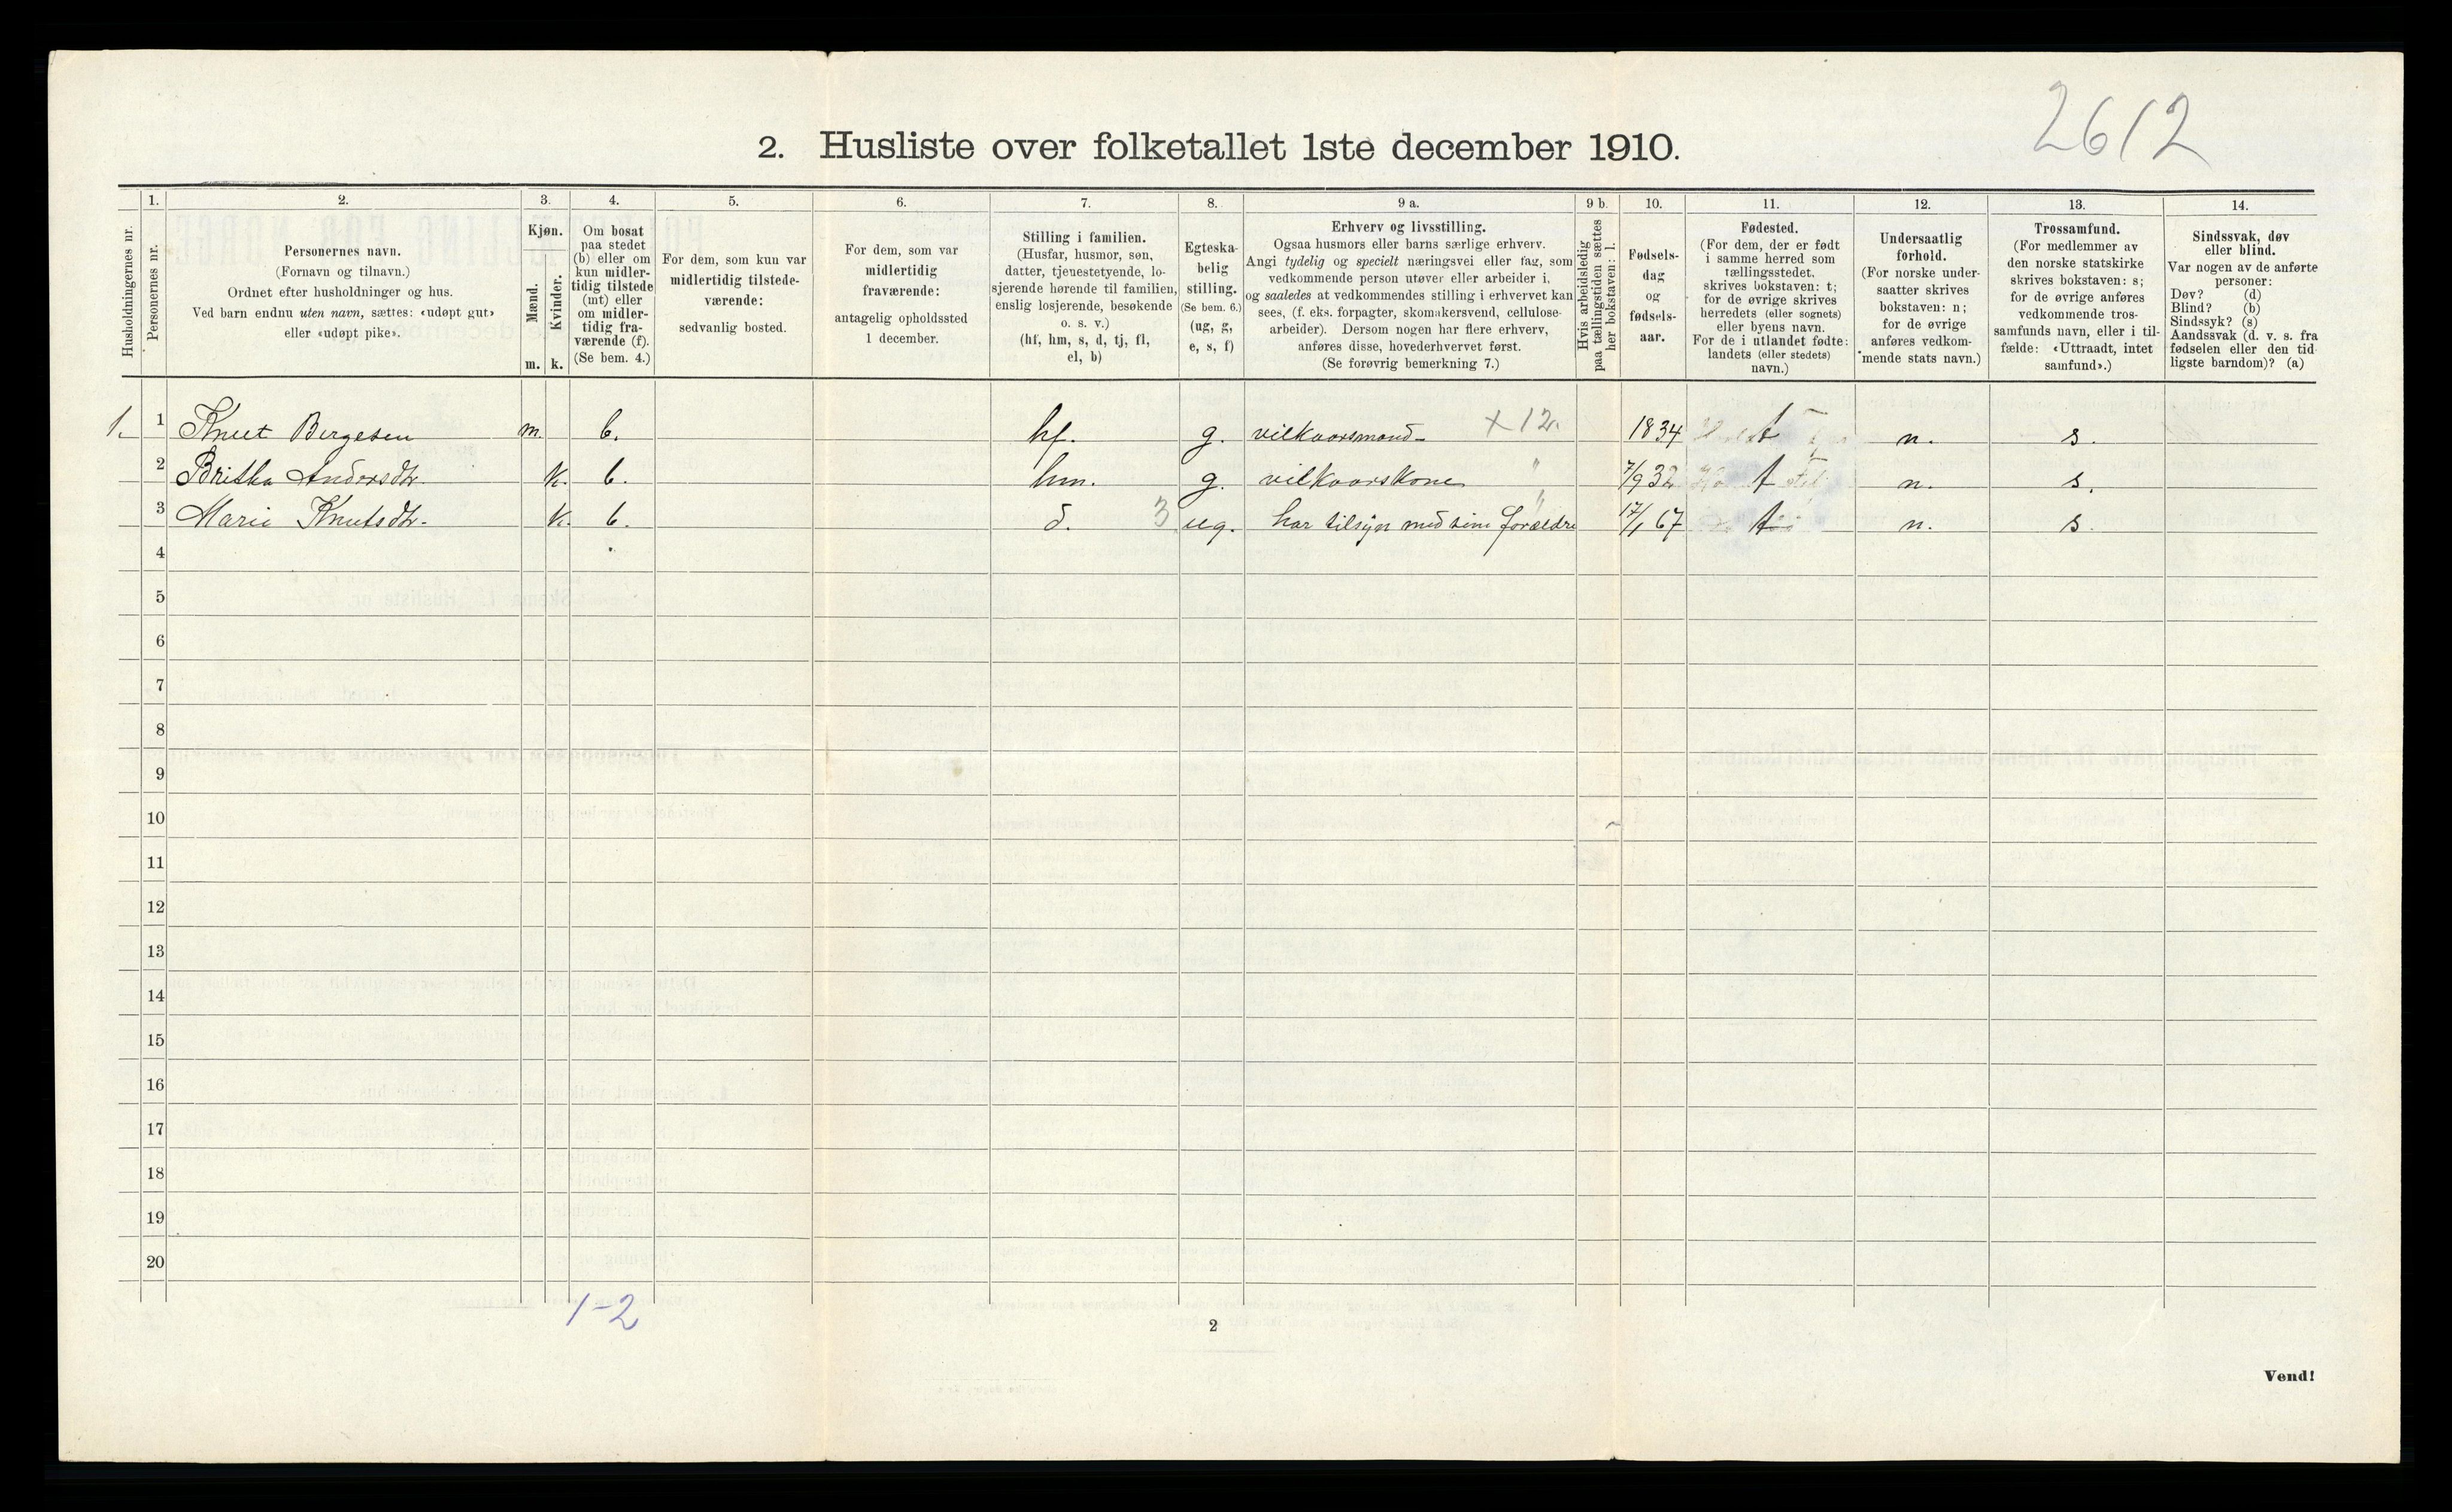 2612
2. Husliste over folketallet 1ste december 1910.
Husholdningernes nr.
1.
Personernes nr.
2.
Personernes navn.
(Fornavn og tilnavn.)
Ordnet efter husholdninger og hus.
Ved barn endnu uten navn, sættes: «udøpt gut»
eller «udøpt pike».
3.
Kjøn.
Mænd.
Kvinder.
m. k.
4.
Om bosat
paa stedet
(b) eller om
kun midler-
tidig tilstede
(mt) eller
om midler-
tidig fra-
værende (f).
(Se bem. 4.)
5.
For dem, som kun var
midlertidig tilstede-
værende:
sedvanlig bosted.
6.
For dem, som var
midlertidig
fraværende:
antagelig opholdssted
1 december.
7.
Stilling i familien.
(Husfar, husmor, søn,
datter, tjenestetyende, lo-
sjerende hørende til familien,
enslig losjerende, besøkende
o. s. v.)
(hf, hm, s, d, tj, fl,
el, b)
8.
Egteska-
belig
stilling.
(Se bem. 6.)
(ug, g,
e, s, f)
9 a.
Erhverv og livsstilling.
Ogsaa husmors eller barns særlige erhverv.
Angi tydelig og specielt næringsvei eller fag, som
vedkommende person utøver eller arbeider i,
og saaledes at vedkommendes stilling i erhvervet kan
sees, (f. eks. forpagter, skomakersvend, cellulose-
arbeider). Dersom nogen har flere erhverv,
anføres disse, hovederhvervet først.
(Se forøvrig bemerkning 7.)
9 b.
Hvis arbeidsledig
paa tællingstiden sættes
her bokstaven: l.
10.
Fødsels-
dag
og
fødsels-
aar.
11.
Fødested.
(For dem, der er født
i samme herred som
tællingsstedet,
skrives bokstaven: t;
for de øvrige skrives
herredets (eller sognets)
eller byens navn.
For de i utlandet fødte:
landets (eller stedets)
navn.)
12.
Undersaatlig
forhold.
(For norske under-
saatter skrives
bokstaven: n;
for de øvrige
anføres vedkom-
mende stats navn.)
13.
Trossamfund.
(For medlemmer av
den norske statskirke
skrives bokstaven: s;
for de øvrige anføres
vedkommende tros-
samfunds navn, eller i til-
fælde: «Uttraadt, intet
samfund».)
14.
Sindssvak, døv
eller blind.
Var nogen av de anførte
personer:
Døv? (d)
Blind? (b)
Sindssyk? (s)
Aandssvak (d. v. s. fra
fødselen eller den tid-
ligste barndom)? (a)
1. 1 Knut Bergesen m. b. hf. g. vilkaarsmand x 12. 1834 t n. s.
2 Britha Andersdtr. k. b. hm. g. vilkaarskone " 7/9 32 t n. s.
3 Marie Knutsdtr. k. b. d. 3 ug. har tilsyn med sine forældre " 17/1 67 t n. s.
4
5
6
7
8
9
10
11
12
13
14
15
16
17
18
19
20
1-2
2
Vend!